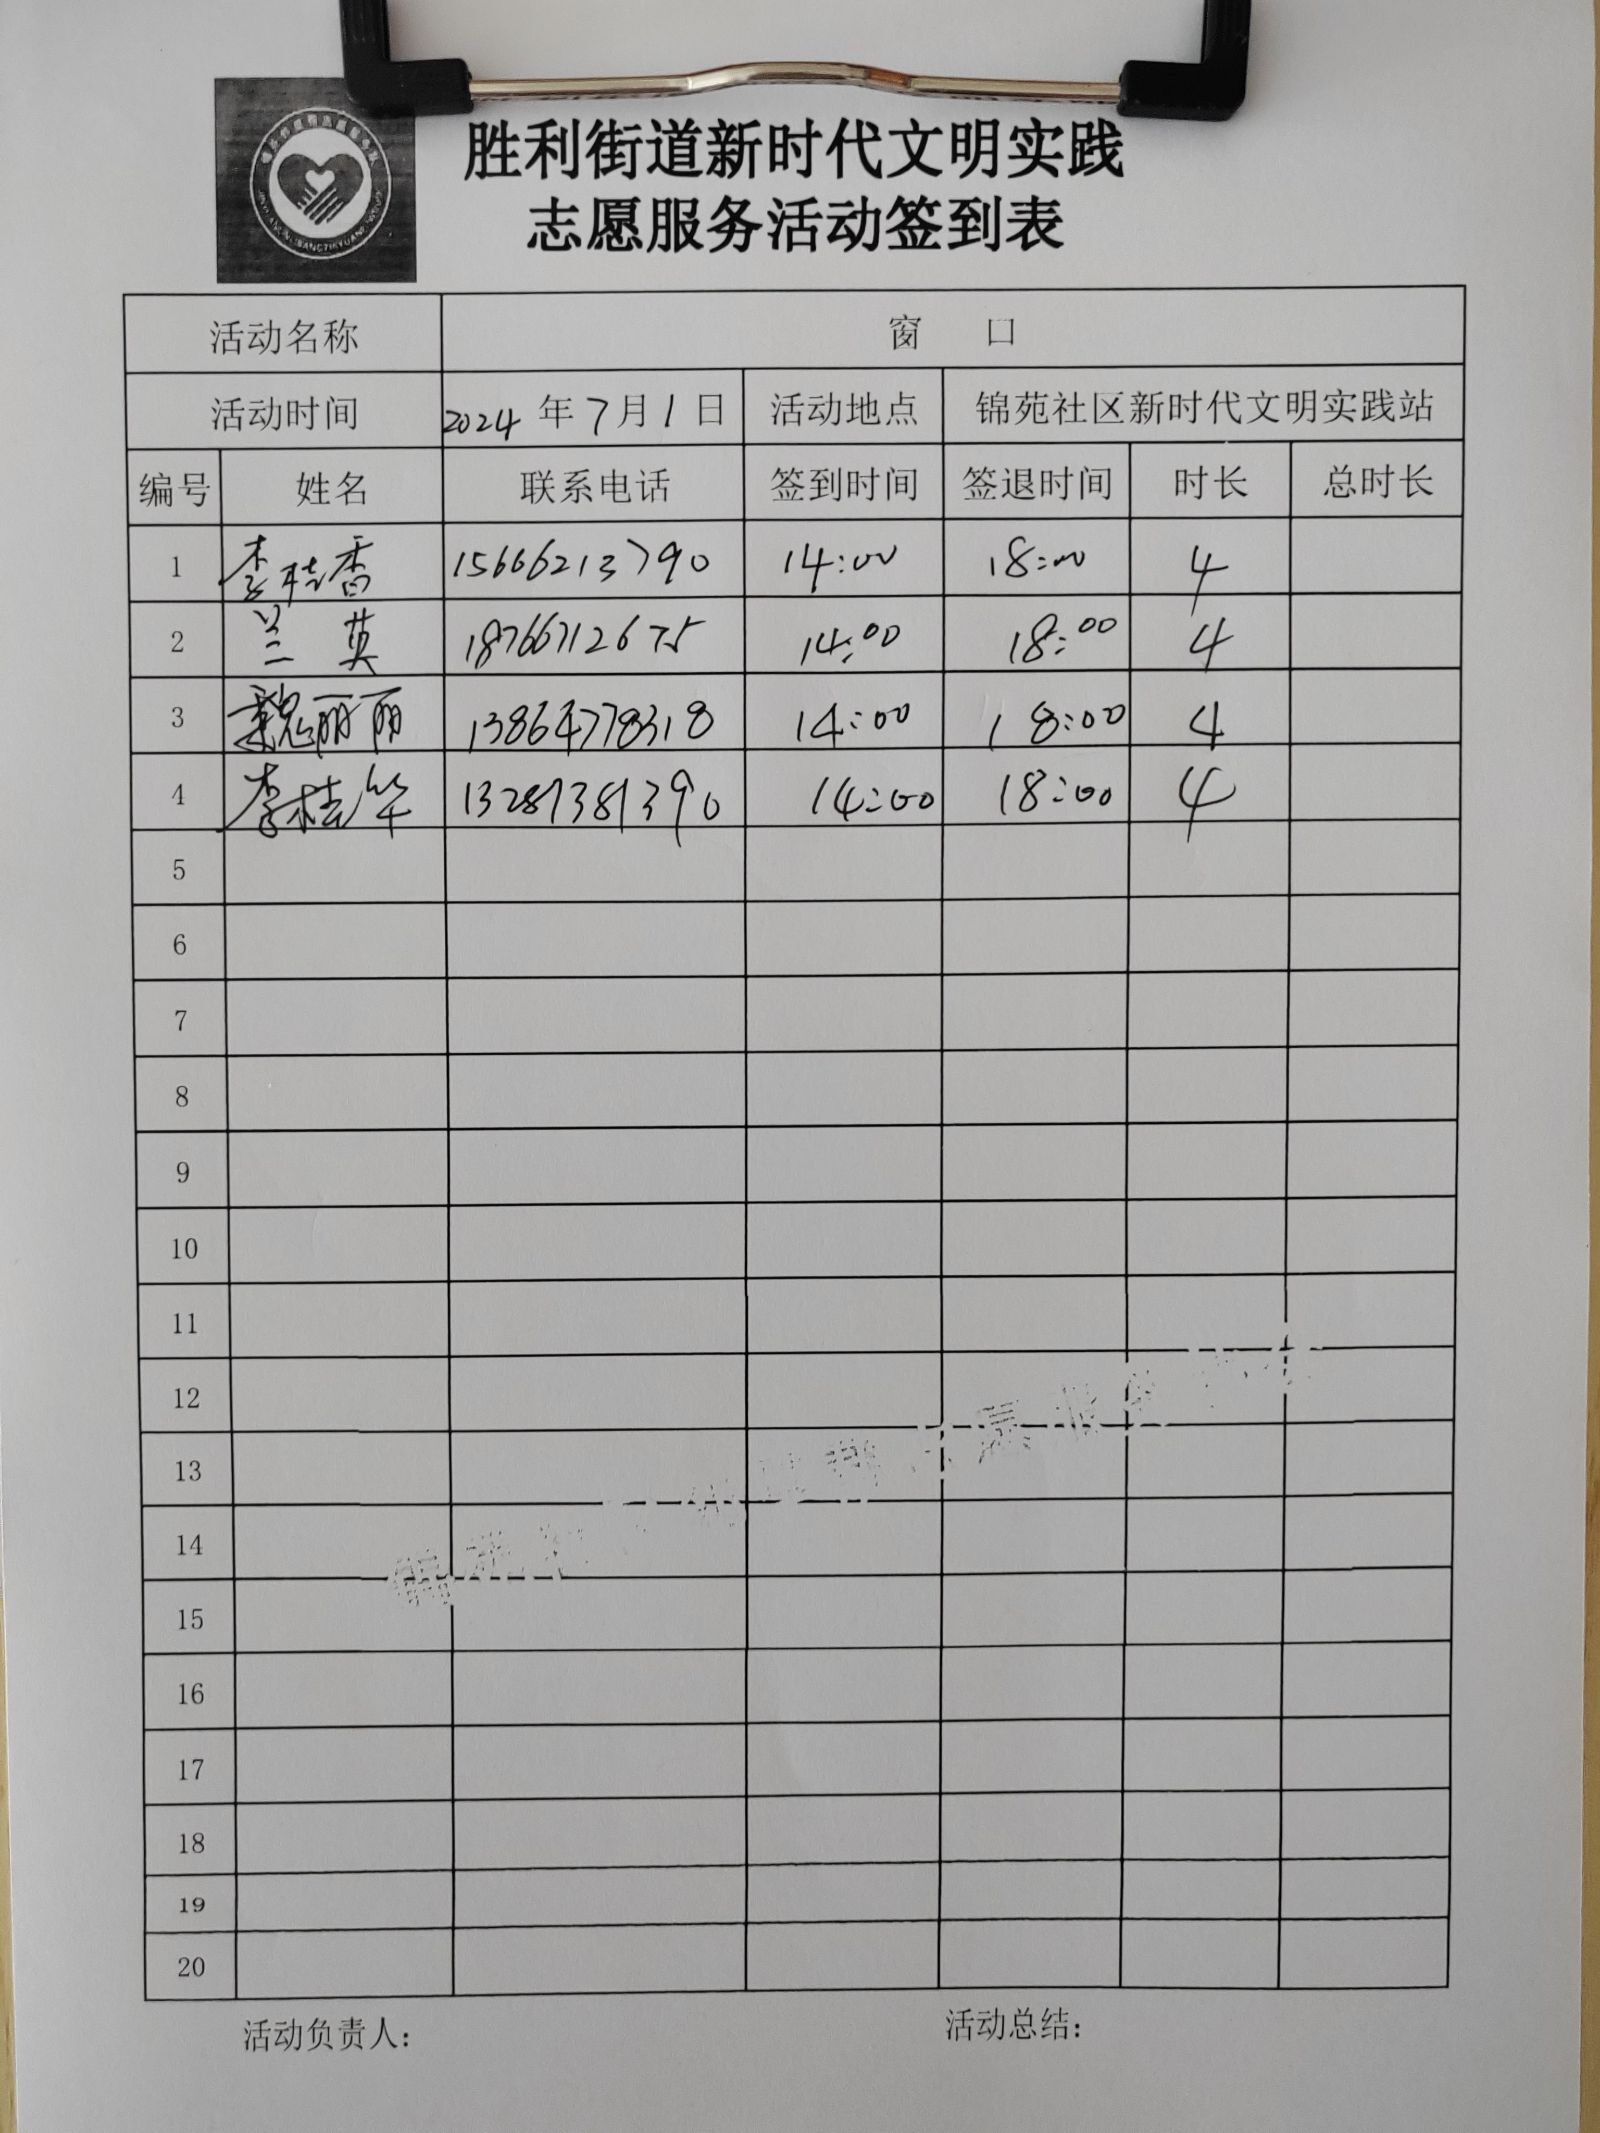 胜利街道新时代文明实践
志愿服务活动签到表
活动名称 窗 口
活动时间 2024年7月1日 活动地点 锦苑社区新时代文明实践站
编号 姓名 联系电话 签到时间 签退时间 时长 总时长
1 李桂香 15666213790 14:00 18:00 4
2 兰英 18766712675 14:00 18:00 4
3 魏丽丽 13864778318 14:00 18:00 4
4 李桂华 13287381390 14:00 18:00 4
5
6
7
8
9
10
11
12
13
14
15
16
17
18
19
20
活动负责人： 活动总结：